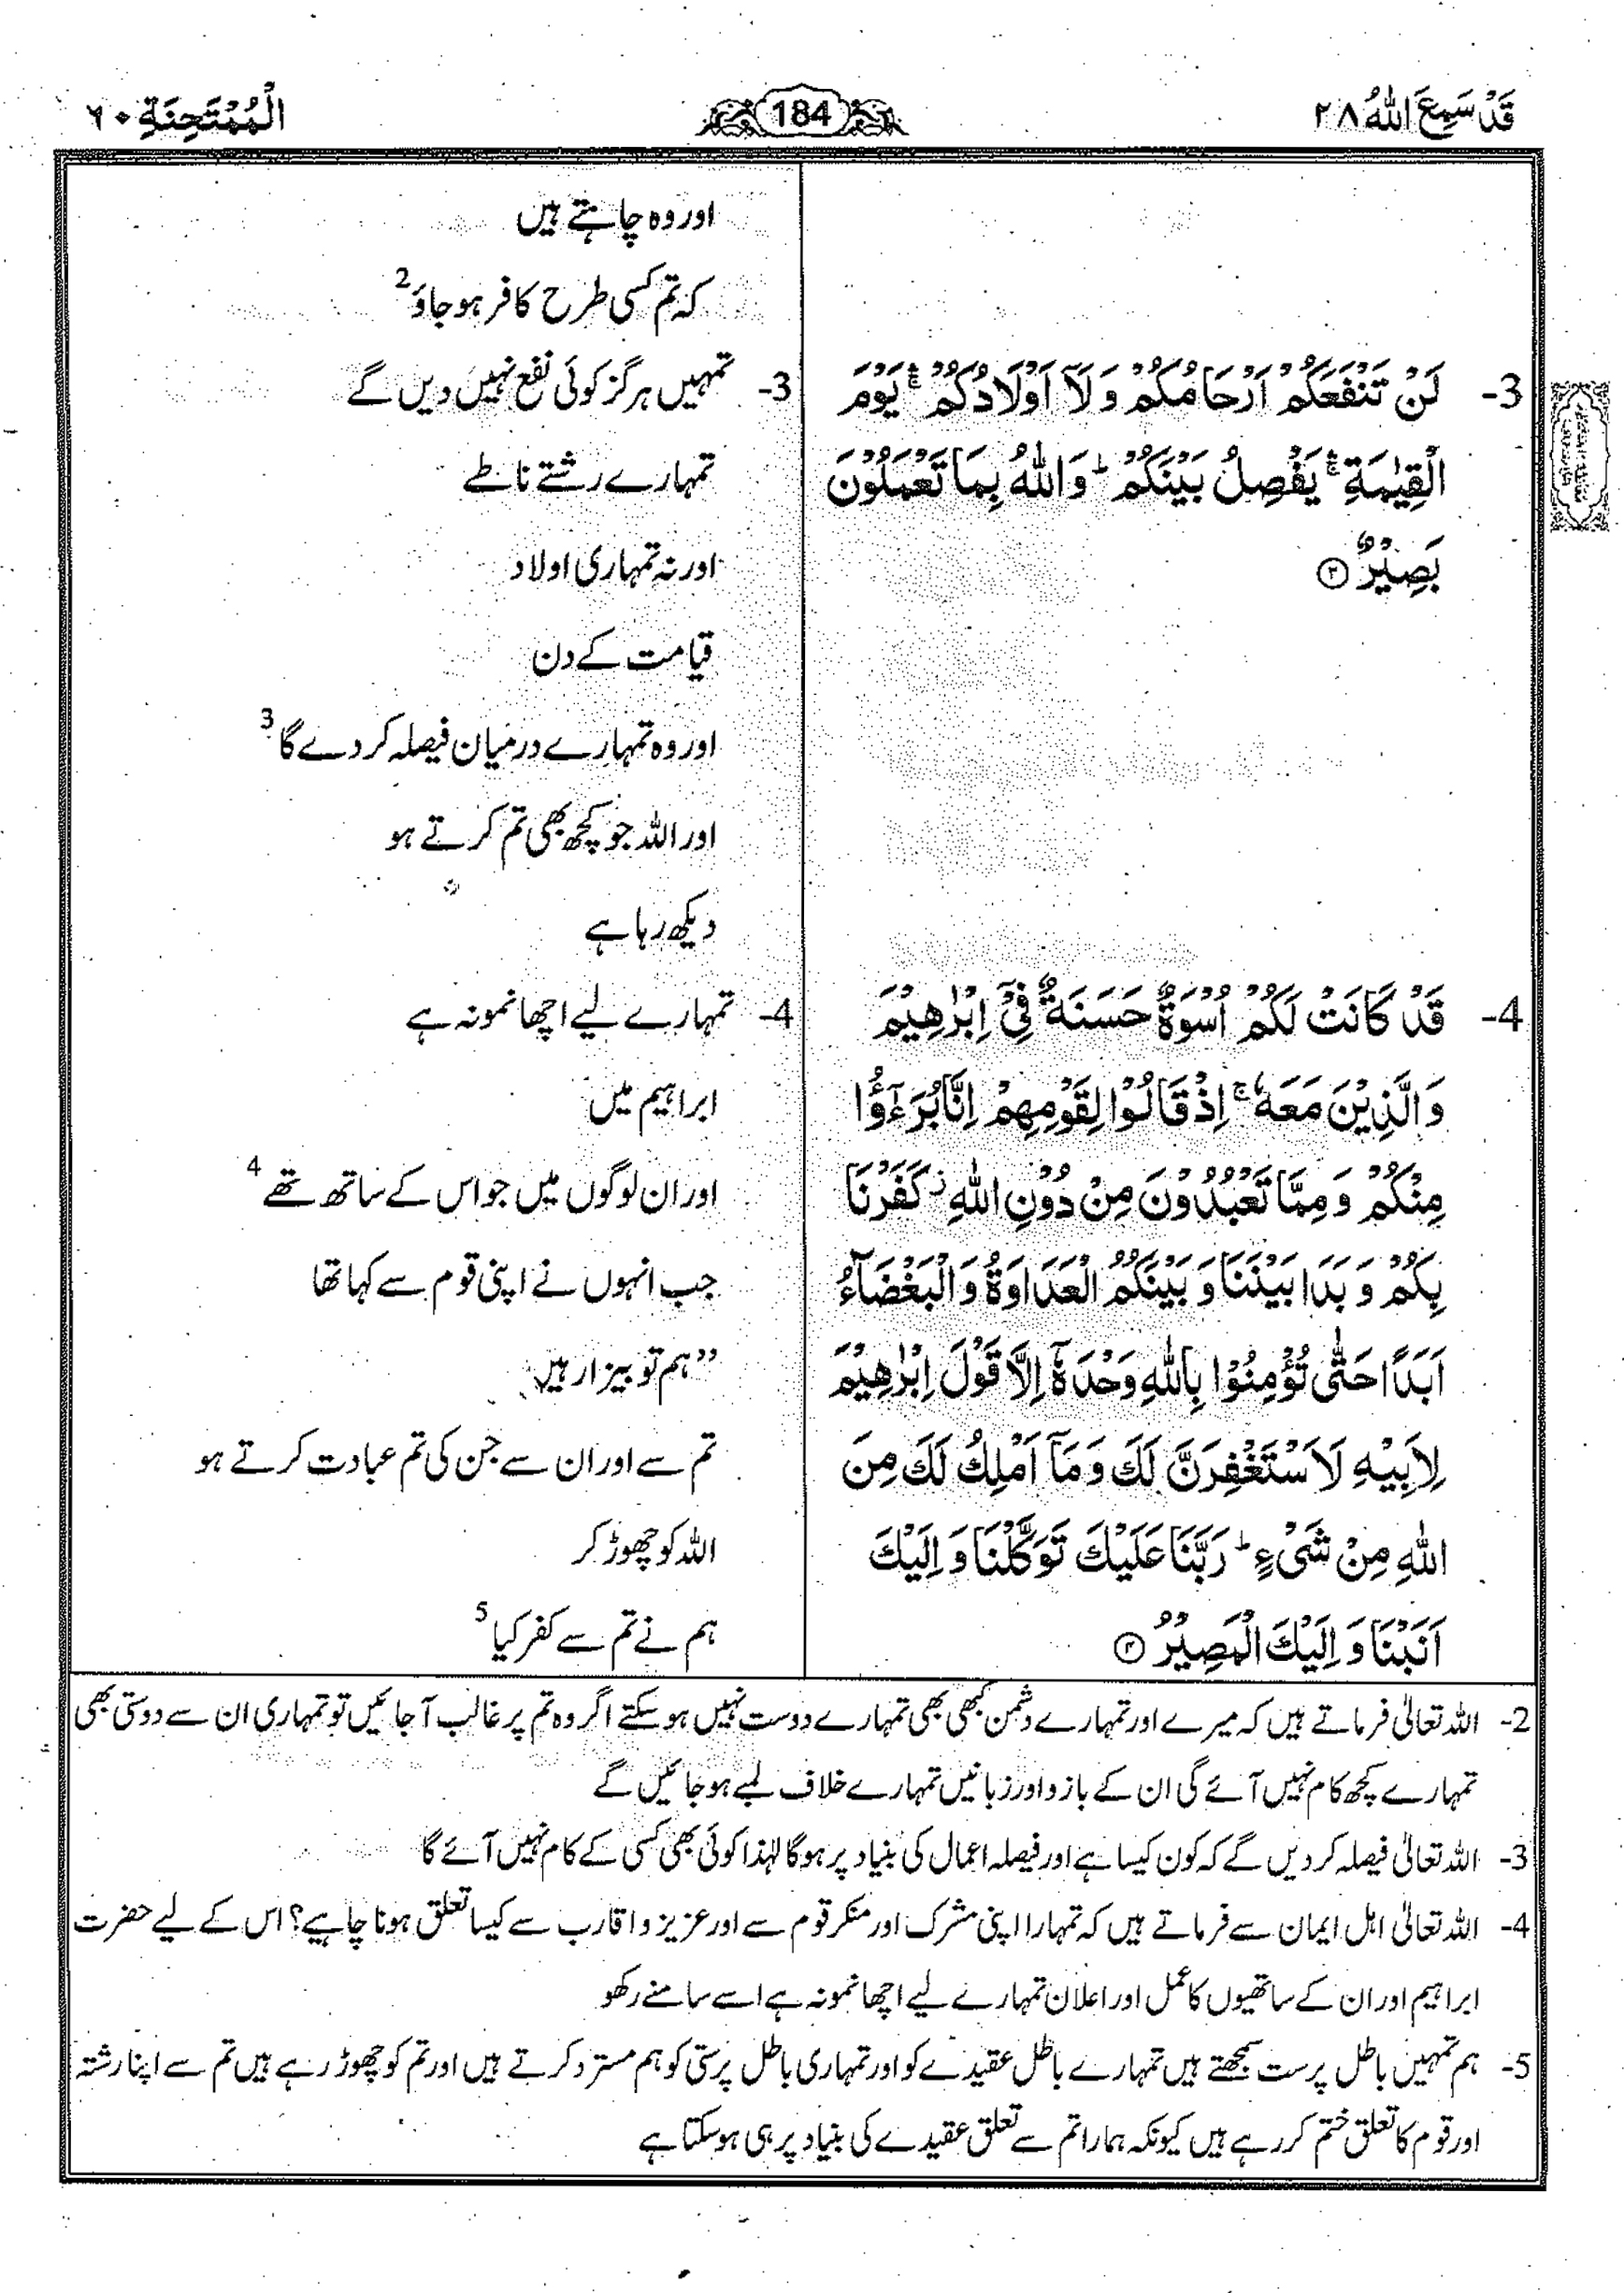 قَدْ سَمِعَ اللّٰهُ ٢٨
184
الْمُمْتَحِنَةِ ٦٠
3- لَنْ تَنْفَعَكُمْ اَرْحَامُكُمْ وَلَاۤ اَوْلَادُكُمْ ۛۚ يَوْمَ
الْقِيٰمَةِ ۛۚ يَفْصِلُ بَيْنَكُمْ ؕ وَاللّٰهُ بِمَا تَعْمَلُوْنَ
بَصِيْرٌ ③
4- قَدْ كَانَتْ لَكُمْ اُسْوَةٌ حَسَنَةٌ فِيْۤ اِبْرٰهِيْمَ
وَالَّذِيْنَ مَعَهٗ ۚ اِذْ قَالُوْا لِقَوْمِهِمْ اِنَّا بُرَءٰٓؤُا
مِنْكُمْ وَمِمَّا تَعْبُدُوْنَ مِنْ دُوْنِ اللّٰهِ ؗ كَفَرْنَا
بِكُمْ وَبَدَا بَيْنَنَا وَبَيْنَكُمُ الْعَدَاوَةُ وَالْبَغْضَآءُ
اَبَدًا حَتّٰى تُؤْمِنُوْا بِاللّٰهِ وَحْدَهٗۤ اِلَّا قَوْلَ اِبْرٰهِيْمَ
لِاَبِيْهِ لَاَسْتَغْفِرَنَّ لَكَ وَمَاۤ اَمْلِكُ لَكَ مِنَ
اللّٰهِ مِنْ شَيْءٍ ؕ رَبَّنَا عَلَيْكَ تَوَكَّلْنَا وَاِلَيْكَ
اَنَبْنَا وَاِلَيْكَ الْمَصِيْرُ ④
اور وہ چاہتے ہیں
کہ تم کسی طرح کافر ہو جاؤ 2
3- تمہیں ہرگز کوئی نفع نہیں دیں گے
تمہارے رشتے ناطے
اور نہ تمہاری اولاد
قیامت کے دن
اور وہ تمہارے درمیان فیصلہ کر دے گا 3
اور اللہ جو کچھ بھی تم کرتے ہو
دیکھ رہا ہے
4- تمہارے لیے اچھا نمونہ ہے
ابراہیم میں
اور ان لوگوں میں جو اس کے ساتھ تھے 4
جب انہوں نے اپنی قوم سے کہا تھا
”ہم تو بیزار ہیں
تم سے اور ان سے جن کی تم عبادت کرتے ہو
اللہ کو چھوڑ کر
ہم نے تم سے کفر کیا 5
2- اللہ تعالیٰ فرماتے ہیں کہ میرے اور تمہارے دشمن کبھی بھی تمہارے دوست نہیں ہو سکتے اگر وہ تم پر غالب آ جائیں تو تمہاری ان سے دوستی بھی
تمہارے کچھ کام نہیں آئے گی ان کے بازو اور زبانیں تمہارے خلاف لمبے ہو جائیں گے
3- اللہ تعالیٰ فیصلہ کر دیں گے کہ کون کیسا ہے اور فیصلہ اعمال کی بنیاد پر ہوگا لہٰذا کوئی بھی کسی کے کام نہیں آئے گا
4- اللہ تعالیٰ اہل ایمان سے فرماتے ہیں کہ تمہارا اپنی مشرک اور منکر قوم سے اور عزیز و اقارب سے کیسا تعلق ہونا چاہیے؟ اس کے لیے حضرت
ابراہیم اور ان کے ساتھیوں کا عمل اور اعلان تمہارے لیے اچھا نمونہ ہے اسے سامنے رکھو
5- ہم تمہیں باطل پرست سمجھتے ہیں تمہارے باطل عقیدے کو اور تمہاری باطل پرستی کو ہم مسترد کرتے ہیں اور تم کو چھوڑ رہے ہیں تم سے اپنا رشتہ
اور قوم کا تعلق ختم کر رہے ہیں کیونکہ ہمارا تم سے تعلق عقیدے کی بنیاد پر ہی ہو سکتا ہے